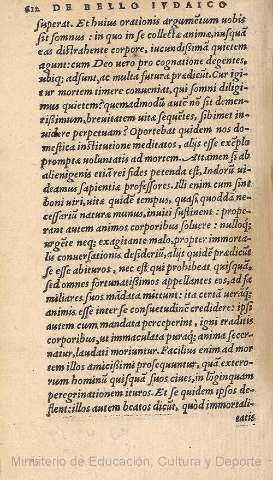 612 DE BELLO IVDAICO
superat. Et huius orationis argumẽtum uobis
sit somnus: in quo in se collectæ animæ, nusquã
eas distrahente corpore, iucundissimã quietem
agunt: cum Deo uero pro cognatione degentes,
ubiq; adsunt, ac multa futura prædicũt. Cur igi-
tur mortem timere conueniat, qui somni diligi-
mus quietem? quemadmodũ autẽ nõ sit demen-
tißimum, breuitatem uitæ sequẽtes, sibimet in-
uidere perpetuam? Oportebat quidem nos do-
mestica institutione meditatos, alijs esse exẽplo
promptæ uoluntatis ad mortem. Attamen si ab
alienigenis etiã rei fides petenda est, Indorũ ui-
deamus sapientiæ professores. Illi enim cum sint
boni uiri, uitæ quidẽ tempus, quasi quoddã ne-
cessariũ naturæ munus, inuiti sustinent: prope-
rant autem animos corporibus soluere: nulloq;
urgẽte neq; exagitante malo, propter immorta-
lis conuersationis desideriũ, alijs quidẽ prædicũt
se esse abituros, nec est qui prohibeat quisquã,
sed omnes fortunatißimos appellantes eos, ad fa
miliares suos mãdata mittunt: ita certã ueraq́;
animis esse inter se consuetudinẽ credidere: ipsi
autem cum mandata perceperint, igni traditis
corporibus, ut immaculata puraq́; anima secer-
natur, laudati moriuntur. Facilius enim ad mor
tem illos amicißimi prosequuntur, quã extero-
rum hominũ quisquã suos ciues, in lõginquam
peregrinationem ituros. Et se quidem ipsos de-
flent: illos autem beatos dicũt, quòd immortali-
tatis
Ministerio de Educación, Cultura y Deporte